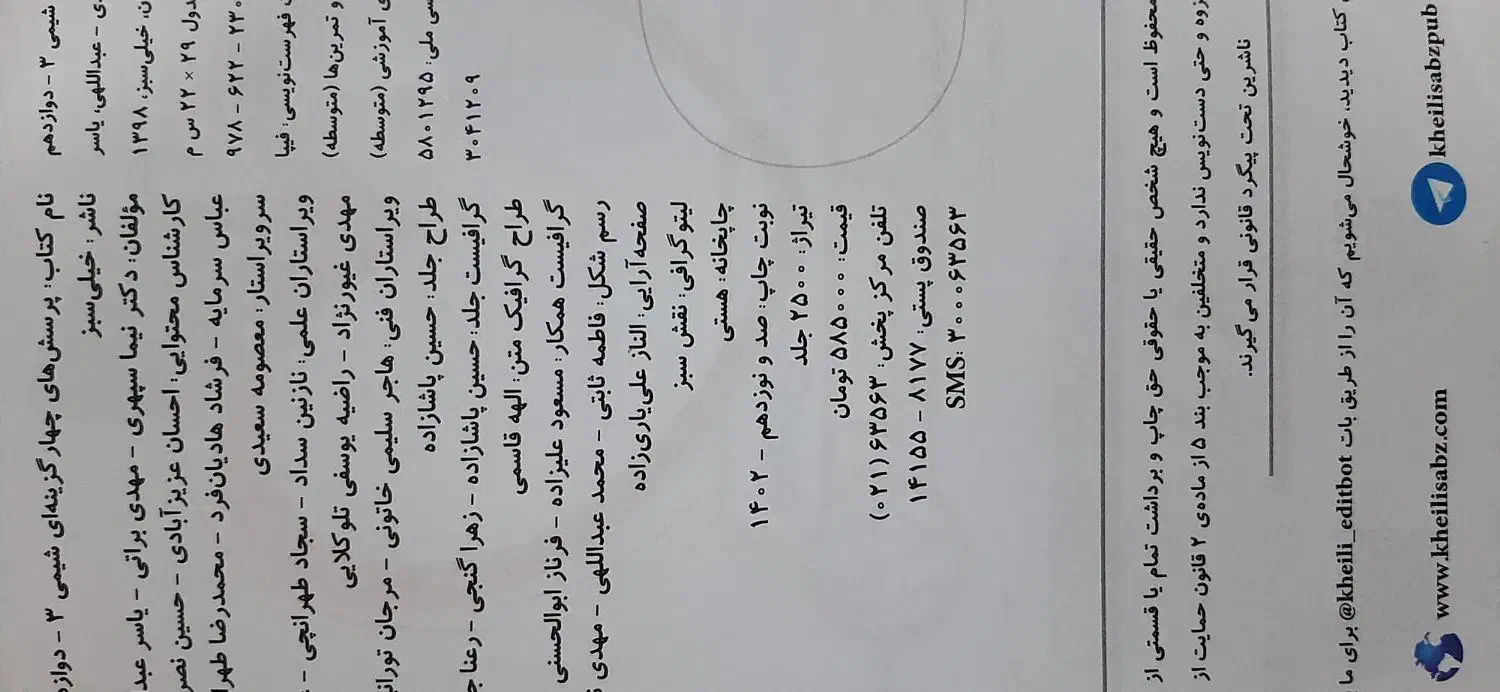 نام کتاب: پرسش‌های چهارگزینه‌ای شیمی ۳ -
ناشر: خیلی‌سبز
مؤلفان: دکتر نیما سپهری - مهدی براتی - یاسر
کارشناس محتوایی: احسان عزیزآبادی - حسین
عباس سرمایه - فرشاد هادیان‌فرد - محمدرضا
سرویراستار: معصومه سعیدی
ویراستاران علمی: نازنین سداد - سجاد طهرانچی -
مهدی غیورنژاد - راضیه یوسفی تلوکلایی
ویراستاران فنی: هاجر سلیمی خاتونی - مرجان
طراح جلد: حسین پاشازاده
گرافیست جلد: حسین پاشازاده - زهرا گنجی - رعنا
طراح گرافیک متن: الهه قاسمی
گرافیست همکار: مسعود علیزاده - فرناز ابوالحسنی
رسم شکل: فاطمه ثابتی - محمد عبداللهی - مهدی
صفحه‌آرایی: الناز علی‌یاری‌زاده
لیتوگرافی: نقش سبز
چاپخانه: هستی
نوبت چاپ: صد و نوزدهم - ۱۴۰۲
تیراژ: ۲۵۰۰ جلد
قیمت: ۵۸۵۰۰۰ تومان
تلفن مرکز پخش: ۶۳۵۶۳ (۰۲۱)
صندوق پستی: ۸۱۷۷ - ۱۴۱۵۵
SMS: ۳۰۰۰۶۳۵۶۳
شیمی ۳ - دوازدهم
- عبداللهی، یاسر
خیلی‌سبز، ۱۳۹۸
۲۹ × ۲۲ س م
۹۷۸ - ۶۲۲ - ۲۳۰
فهرست‌نویسی: فیپا
و تمرین‌ها (متوسطه)
آموزشی (متوسطه)
ملی: ۵۸۰۱۲۹۵
۳۰۴۱۲۰۹
محفوظ است و هیچ شخص حقیقی یا حقوقی حق چاپ و برداشت تمام یا قسمتی از
و حتی دست‌نویس ندارد و متخلفین به موجب بند ۵ از ماده‌ی ۲ قانون حمایت از
ناشرین تحت پیگرد قانونی قرار می‌گیرند.
کتاب دیدید، خوشحال می‌شویم که آن را از طریق بات kheili_editbot@ برای ما
kheilisabzpub
www.kheilisabz.com